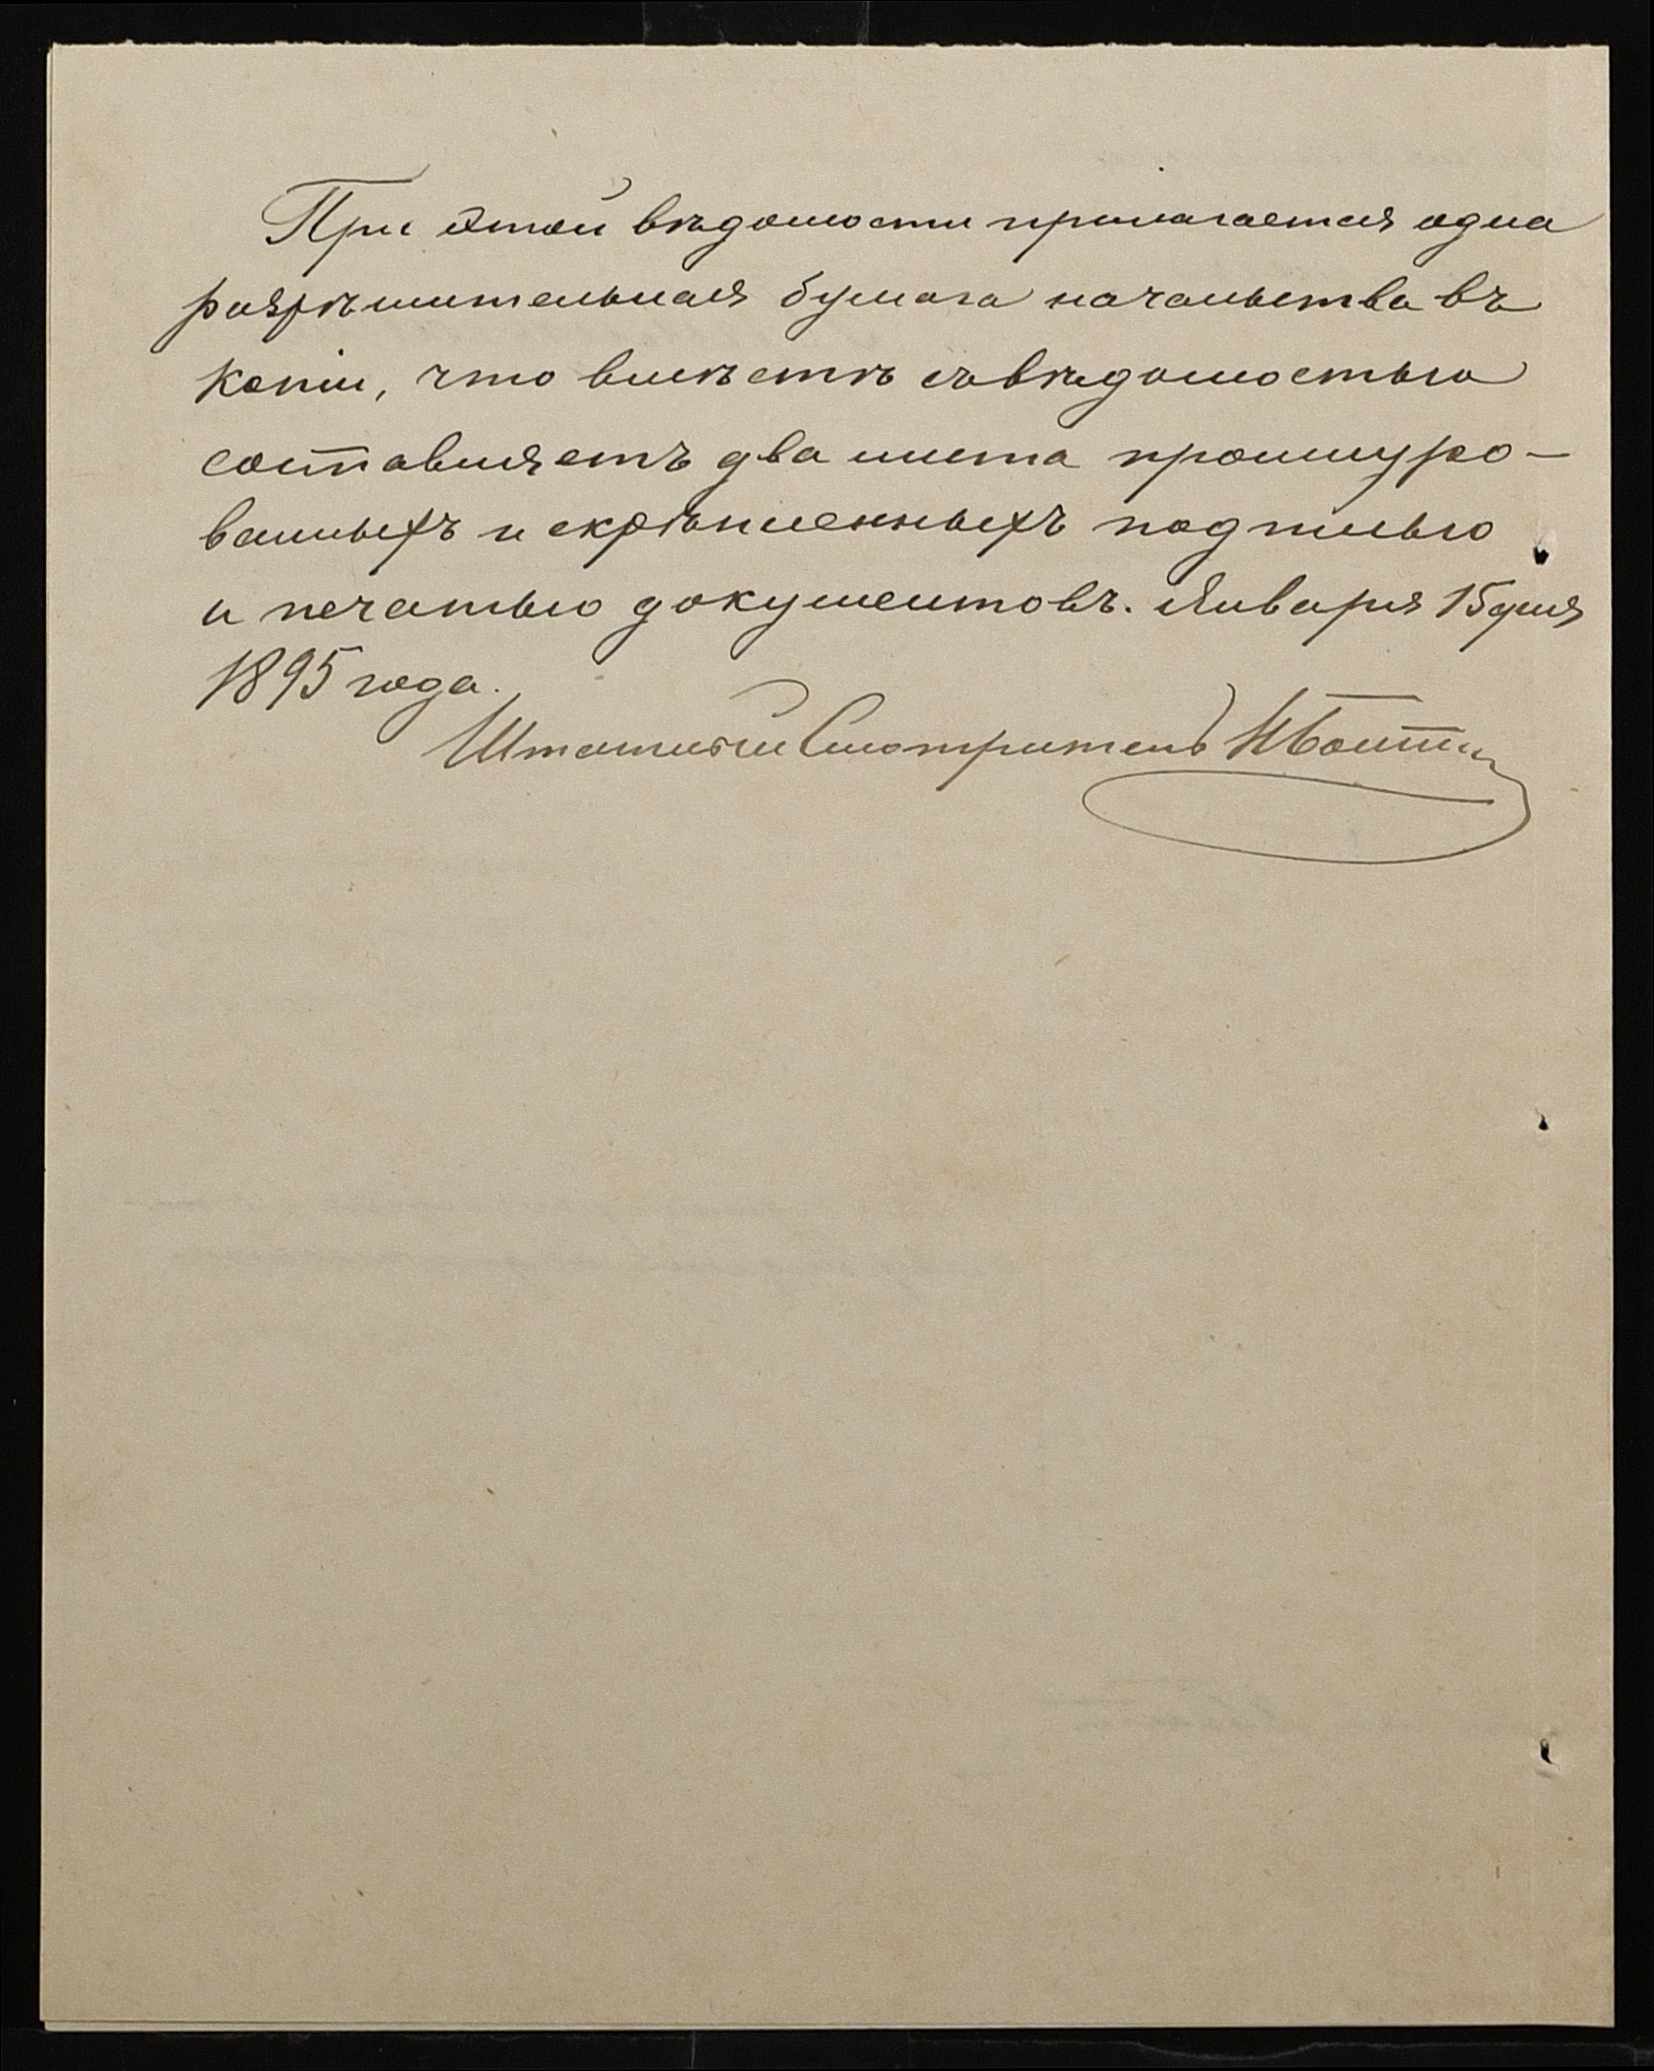 При этой вѣдомости прилагается одна
разрѣшительная бумага начальства въ
копіи, что вмѣстѣ съ вѣдомостью
составляетъ два листа прошнуро-
ванныхъ и скрѣпленныхъ подписью
и печатью документовъ. Января 15 дня
1895 года.
Штатный Смотритель